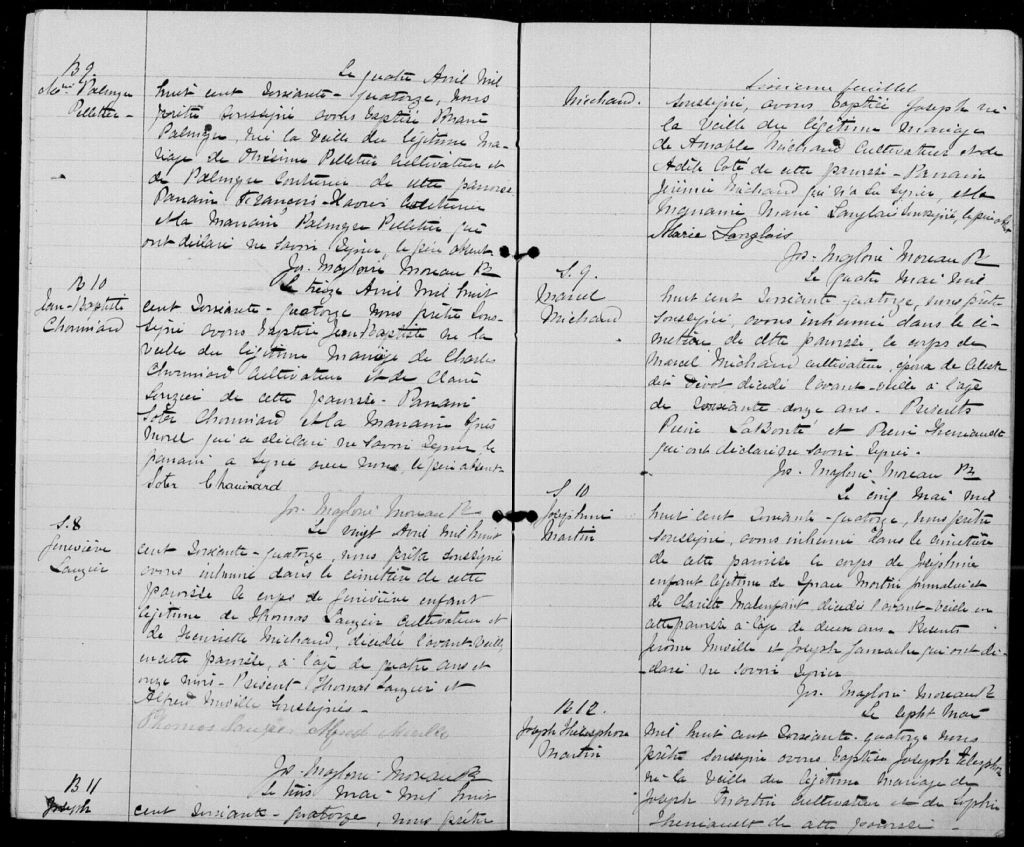 B 9
Mie Palmyre
Pelletier -
Le quatre Avril Mil
huit cent soixante-quatorze, nous
prêtre soussigné avons baptisé Marie
Palmyre, née la veille du légitime ma-
riage de Onésime Pelletier Cultivateur et
de Palmyre Couturier de cette paroisse
Parrain François-Xavier Couturier
et la Marraine, Palmyre Pelletier qui
ont déclaré ne savoir signer, le père absent
Jos. Magloire Moreau Ptr
B 10
Jean-Baptiste
Chouinard
Le treize Avril Mil huit
cent soixante-quatorze nous prêtre sous-
signé avons baptisé Jean Baptiste né la
veille du légitime mariage de Charles
Chouinard Cultivateur et de Claire
Lauzier de cette paroisse - Parrain
Soter Chouinard et la Marraine Agnès
Morel qui a déclaré ne savoir signer le
parrain a signé avec nous, le père absent
Soter Chouinard
Jos. Magloire Moreau Ptr
S. 8
Geneviève
Lauzier
Le vingt Avril Mil huit
cent soixante-quatorze, nous prêtre soussigné
avons inhumé dans le cimetière de cette
paroisse le corps de Geneviève enfant
légitime de Thomas Lauzier cultivateur et
de Henriette Michaud, décédée l'avant-veille
en cette paroisse, à l'âge de quatre ans et
onze mois - Présent Thomas Lauzier et
Alfred Miville soussignés -
Thomas Lauzier Alfred Miville
Jos. Magloire Moreau Ptr
B 11
Joseph
Le trois Mai Mil huit
cent soixante-quatorze, nous prêtre
feuillet
Michaud.
soussigné, avons baptisé Joseph né
la veille du légitime mariage
de Amable Michaud Cultivateur et de
Adèle Coté de cette paroisse - Parrain
Jérémie Michaud qui n'a su signer et la
Marraine Marie Langlais soussignée, le père
Marie Langlais
Jos. Magloire Moreau Ptr
S. 9.
Marcel
Michaud
Le quatre Mai Mil
huit cent soixante-quatorze, nous prêtre
soussigné, avons inhumé dans le ci-
metière de cette paroisse, le corps de
Marcel Michaud cultivateur, époux de
décédé l'avant-veille à l'âge
de soixante douze ans. Présents
Pierre LaBonté et Pierre Theriault
qui ont déclaré ne savoir signer.
Jos. Magloire Moreau Ptr
S. 10
Joséphine
Martin
Le cinq Mai Mil
huit cent soixante-quatorze, nous prêtre
soussigné, avons inhumé dans le cimetière
de cette paroisse le corps de Joséphine
enfant légitime de Ignace Martin journalier et
de Clarille Malenfant décédée l'avant-veille en
cette paroisse à l'âge de deux ans - Présents
Jérome Miville et Joseph Gamache qui ont dé-
claré ne savoir signer
Jos. Magloire Moreau Ptr
B 12.
Joseph Thélesphore
Martin
Le sept Mai
Mil huit cent soixante-quatorze nous
prêtre soussigné avons baptisé Joseph
né la veille du légitime mariage de
Joseph Martin cultivateur et de Sophie
Theriault de cette paroisse -